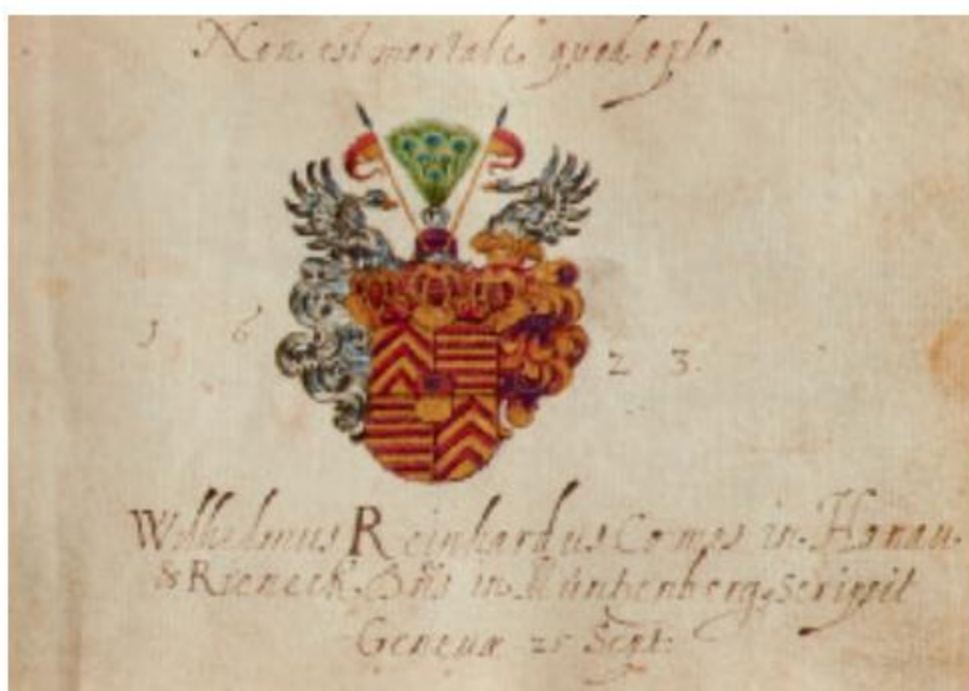 Non est mortale quod opto
16 23.
Wilhelmus Reinhardus Comes in Hanau.
& Rieneck. Dns in Müntzenberg, scripsit
Genevæ 25 Sept: